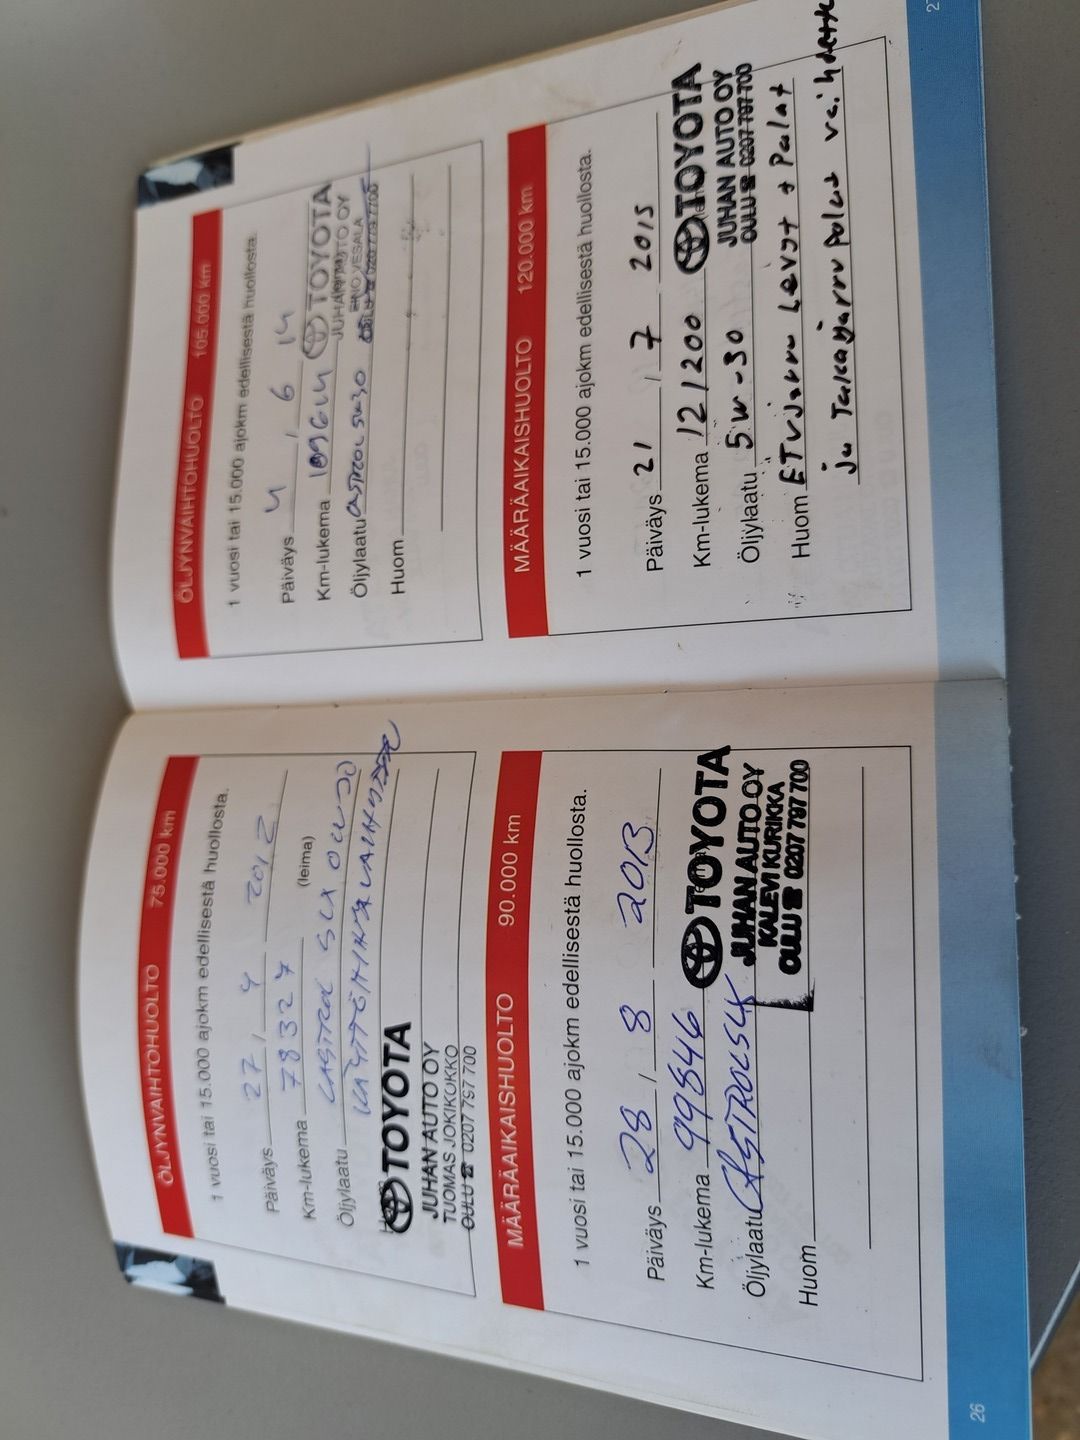 ÖLJYNVAIHTOHUOLTO 75.000 km
1 vuosi tai 15.000 ajokm edellisestä huollosta.
Päiväys 27 / 4 2012
Km-lukema 78327 (leima)
Öljylaatu CASTROL SLX 0W30
TOYOTA
JUHAN AUTO OY
TUOMAS JOKIKOKKO
OULU ☎ 0207 797 700
MÄÄRÄAIKAISHUOLTO 90.000 km
1 vuosi tai 15.000 ajokm edellisestä huollosta.
Päiväys 28 / 8 2013
Km-lukema 99846 TOYOTA
Öljylaatu CASTROL SLX JUHAN AUTO OY
KALEVI KURIKKA
Huom OULU ☎ 0207 797 700
26
ÖLJYNVAIHTOHUOLTO 105.000 km
1 vuosi tai 15.000 ajokm edellisestä huollosta.
Päiväys 4 / 6 14
Km-lukema TOYOTA
JUHAN AUTO OY
EINO VESALA
Öljylaatu CASTROL 5W30
Huom
MÄÄRÄAIKAISHUOLTO 120.000 km
1 vuosi tai 15.000 ajokm edellisestä huollosta.
Päiväys 21 / 7 2015
Km-lukema 121200 TOYOTA
JUHAN AUTO OY
Öljylaatu 5W-30 OULU ☎ 0207 797 700
Huom ETujarru Levyt + Palat
ja Takajarru palat vaihdettu